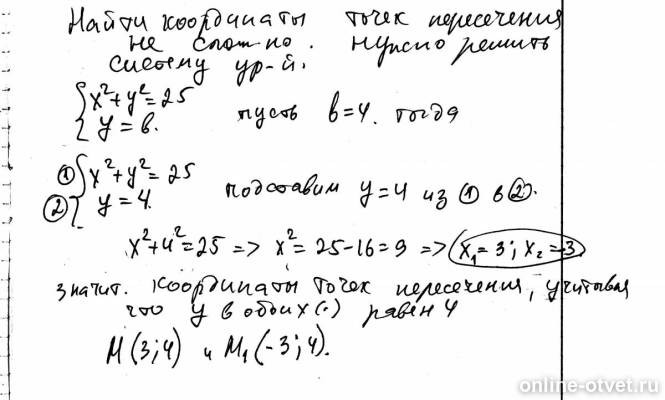 Найти координаты точек пересечения
не сложно. Нужно решить
систему ур-й.
{ x²+y²=25
{ y=в.
пусть в=4. тогда
① { x²+y²=25
② { y=4.
подставим y=4 из ① в ②.
x²+4²=25 => x²=25-16=9 => x₁=3; x₂=-3
значит. координаты точек пересечения, учитывая
что y в обоих (·) равен 4
M(3;4) и M₁(-3;4).
online-otvet.ru